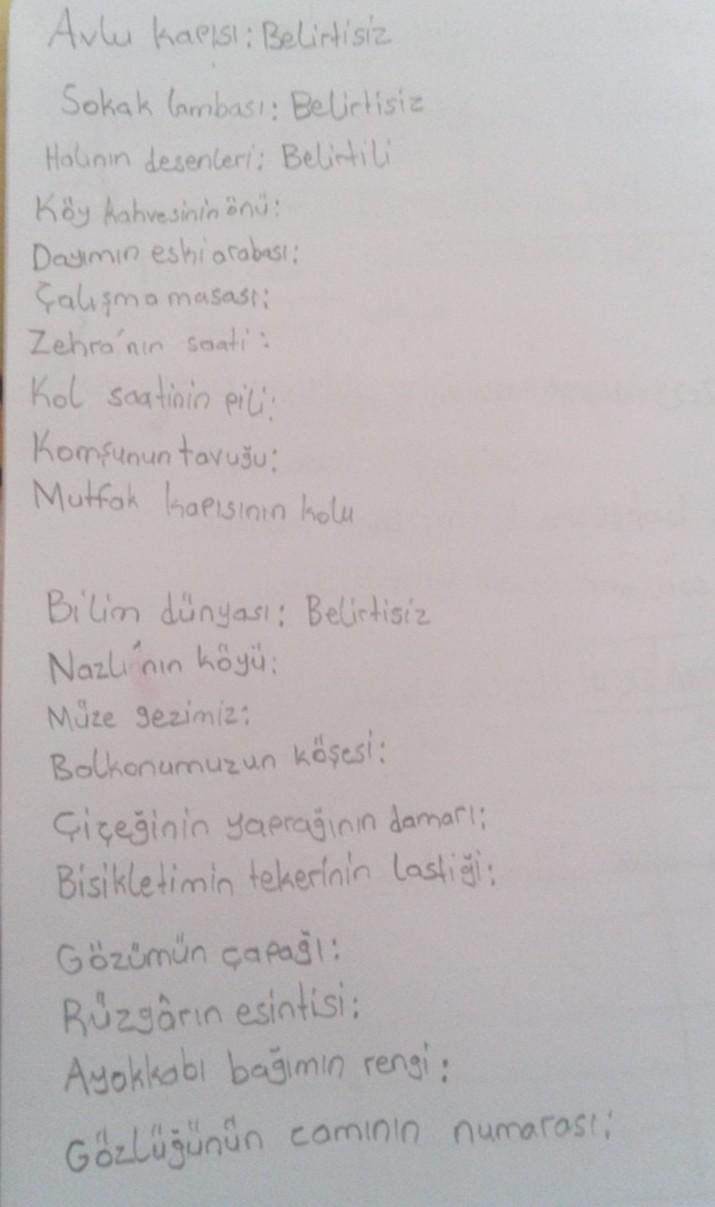 Avlu kapısı: Belirtisiz
Sokak lambası: Belirtisiz
Halının desenleri: Belirtili
Köy kahvesinin önü:
Dayımın eski arabası:
Çalışma masası:
Zehra'nın saati:
Kol saatinin pili:
Komşunun tavuğu:
Mutfak kapısının kolu
Bilim dünyası: Belirtisiz
Nazlı'nın köyü:
Müze gezimiz:
Balkonumuzun köşesi:
Çiçeğinin yaprağının damarı:
Bisikletimin tekerinin lastiği:
Gözümün çapağı:
Rüzgârın esintisi:
Ayakkabı bağımın rengi:
Gözlüğünün camının numarası: